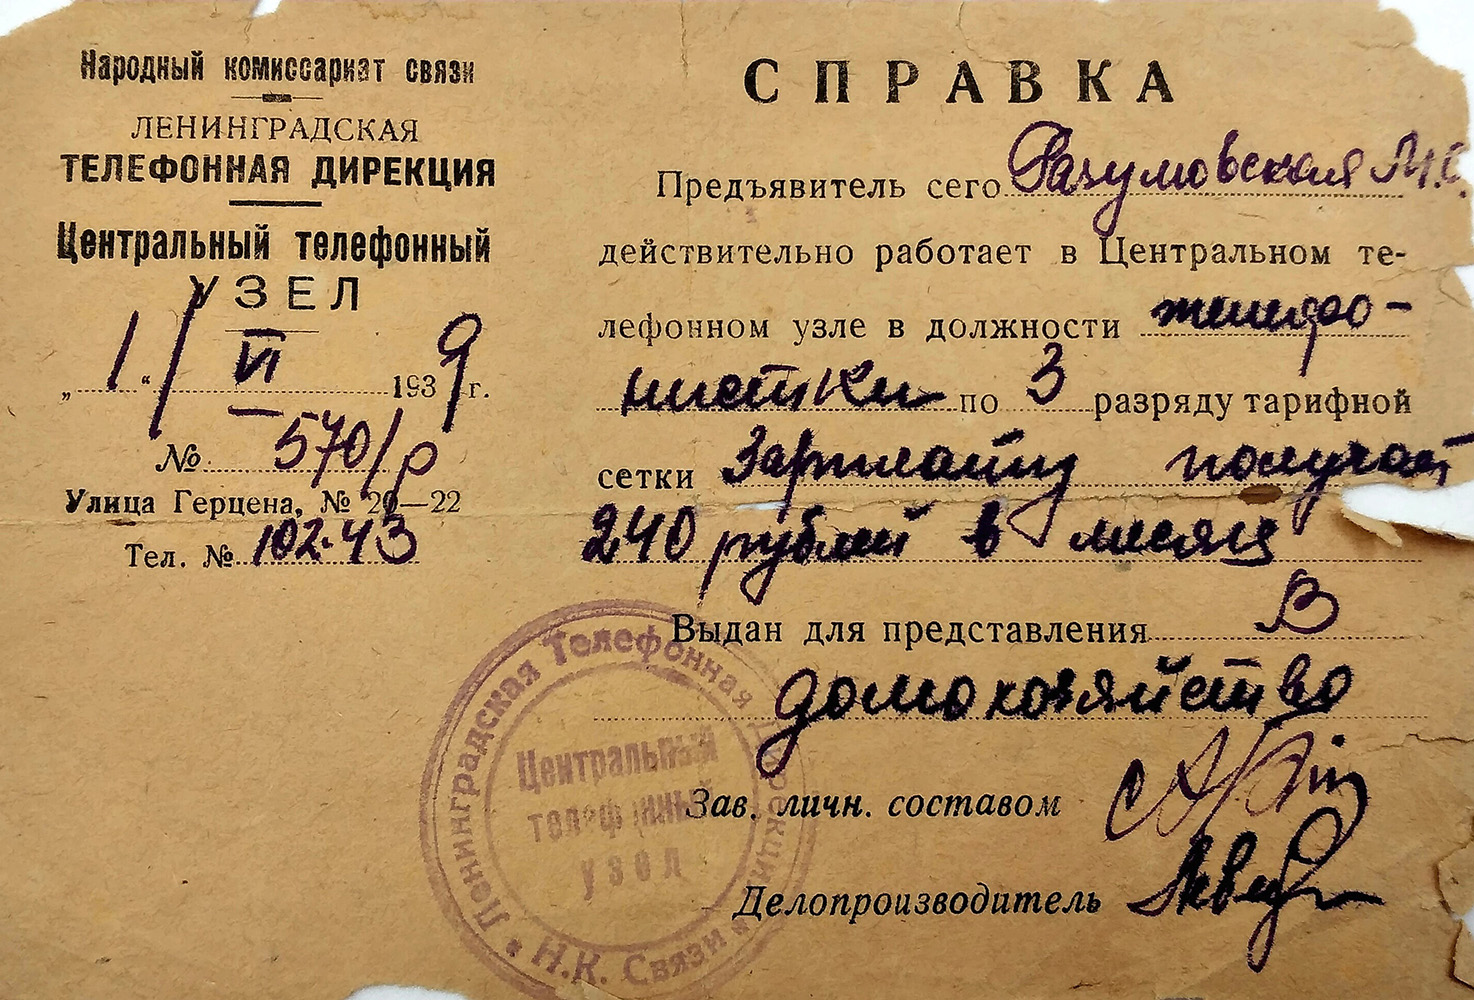 Народный комиссариат связи
ЛЕНИНГРАДСКАЯ
ТЕЛЕФОННАЯ ДИРЕКЦИЯ
Центральный телефонный
УЗЕЛ
„1“ VI 1939 г.
№ 570/р
Улица Герцена, № 20—22
Тел. № 102-43
СПРАВКА
Предъявитель сего Разумовская М.С.
действительно работает в Центральном те-
лефонном узле в должности телефо-
нистки по 3 разряду тарифной
сетки Зарплату получает
240 рублей в месяц
Выдан для представления В
домохозяйство
Зав. личн. составом
Делопроизводитель
Ленинградская Телефонная Дирекция
Н.К. Связи
Центральный
телефонный
узел